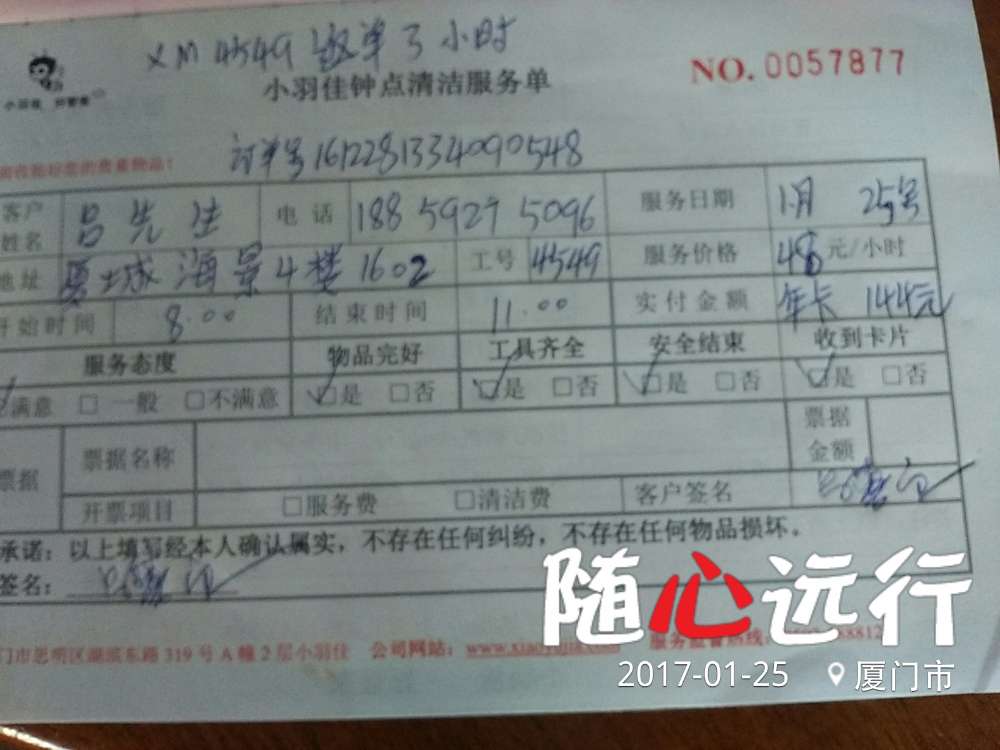 XM 4549 返单 3 小时
小羽佳钟点清洁服务单
NO. 0057877
订单号 161228133409 0548
客户姓名 吕先生 电话 188 5927 5096 服务日期 1月 25号
地址 夏士城海景4楼 1602 工号 4549 服务价格 48 元/小时
开始时间 8:00 结束时间 11:00 实付金额 年卡 144元
服务态度 物品完好 工具齐全 安全结束 收到卡片
满意 □ 一般 □不满意 □是 □否 □是 □否 □是 □否 □是 □否
票据 票据名称 票据金额
开票项目 □服务费 □清洁费 客户签名
承诺：以上填写经本人确认属实，不存在任何纠纷，不存在任何物品损坏。
签名：
门市思明区湖滨东路 319 号 A 幢 2 层小羽佳 公司网站：www.xiaoyujia.com
随心远行
2017-01-25 厦门市